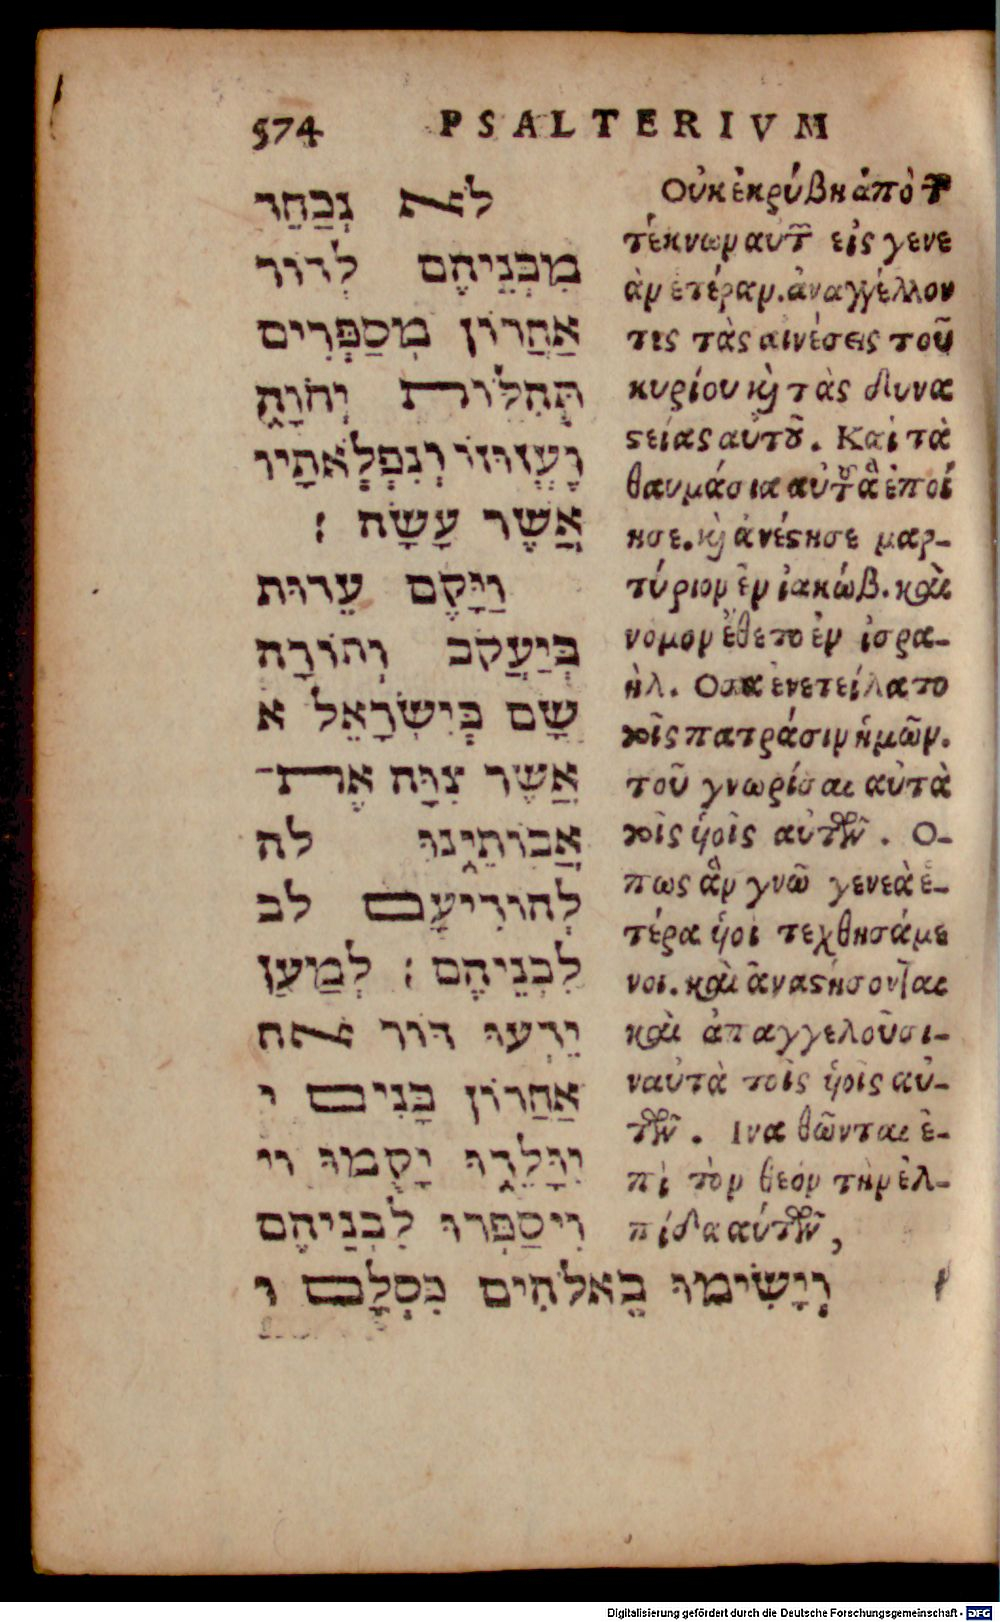 574 PSALTERIVM
לא נְכַחֵר
מִבְּנֵיהֶם לְדוֹר
אַחֲרוֹן מְסַפְּרִים
תְּהִלּוֹת יְהוָה
וֶעֱזוּזוֹ וְנִפְלְאֹתָיו
אֲשֶׁר עָשָׂה :
וַיָּקֶם עֵדוּת
בְּיַעֲקֹב וְתוֹרָה
שָׂם בְּיִשְׂרָאֵל א
אֲשֶׁר צִוָּה אֶת־
אֲבוֹתֵינוּ לה
לְהוֹדִיעָם לב
לִבְנֵיהֶם : לְמַעַן
יֵדְעוּ דּוֹר אח
אַחֲרוֹן בָּנִים י
יִוָּלֵדוּ יָקֻמוּ וי
וִיסַפְּרוּ לִבְנֵיהֶם
וְיָשִׂימוּ בֵאלֹהִים כִּסְלָם ו
Οὐκ ἐκρύβη ἀπὸ τ̃
τέκνων αυτ̃ εἰς γενε
ὰν ετέραν. ἀναγγέλλον
τες τὰς αινέσεις τοῦ
κυρίου κ̀ τὰς δυνα
ϛείας αὐτοῦ. Καὶ τὰ
θαυμάσια αὐτοῦ ἃ ἐποί
ησε. κ̀ ἀνέϛησε μαρ-
τύριον ἐν ἰακώβ. καὶ
νομον ἔθετο ἐν ἰσρα-
ὴλ. Οσα ἐνετείλατο
τοῖς πατράσιν ἡμῶν.
τοῦ γνωρίσαι αὐτὰ
τοῖς ὑοῖς αὐτῶν. Ο-
πως ἂν γνῶ γενεὰ ἑ-
τέρα ὑοι τεχθησόμε
νοι. καὶ ἀναϛήσονται
καὶ ἀπαγγελοῦσι-
ν αὐτὰ τοῖς ὑοῖς αὐ-
τῶν. Ινα θῶνται ἐ-
πὶ τὸν θεόν τὴν ἐλ-
πίδα αὐτῶν,
Digitalisierung gefördert durch die Deutsche Forschungsgemeinschaft - DFG